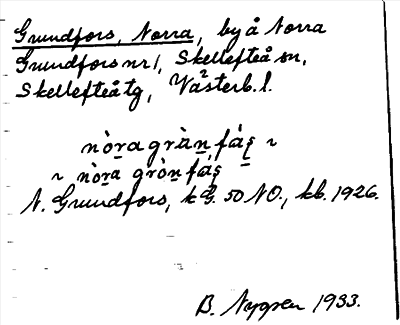 Grundfors, Norra, by å Norra
Grundfors nr 1, Skellefteå sn,
Skellefteå tg, Västerb. l.
nòra gràn, fás̨ ~
~ nòra gròn fás̨
N. Grundfors, kG. 50 NO., kb. 1926.
B. Nygren 1933.